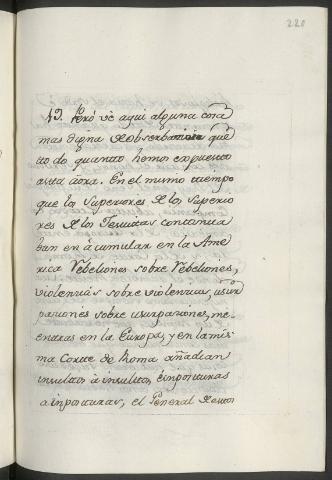 220
49. Peró vè aqui alguna cosa
mas digna de observacion que
todo quanto hemos expuesto
asta aora. En el mismo tiempo
que los Superiores de los Superio
res de los Jesuitas continua
ban en àcumular en la Ame
rica Rebeliones sobre Rebeliones,
violencias sobre violencias, usur
paciones sobre usurpaciones, me-
enaras en la Europa, y en la mis
ma Corte de Roma añadian
insultos à insultos, è inposturas
a inposturas, el General de estos